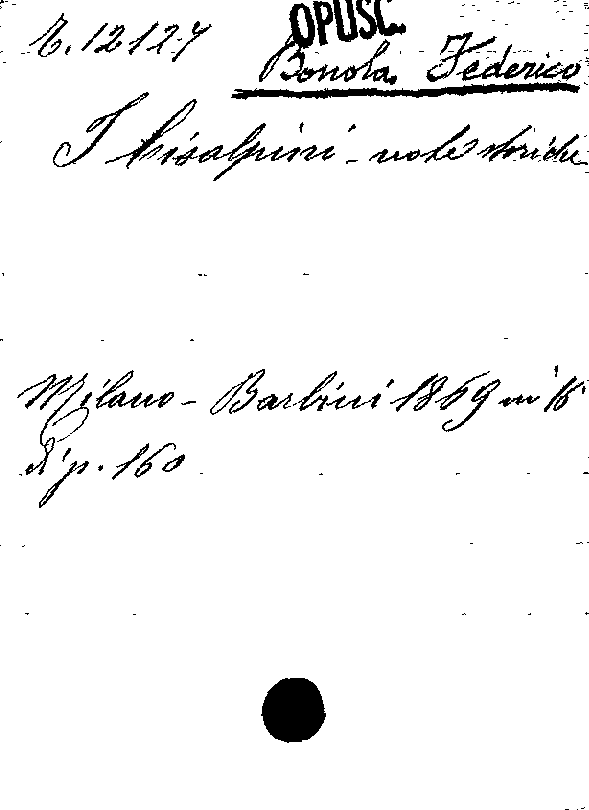 OPUSC.
E.12127
Bonola Federico
I Cisalpini - note storiche
Milano - Barbini 1869 in 16
di p. 160